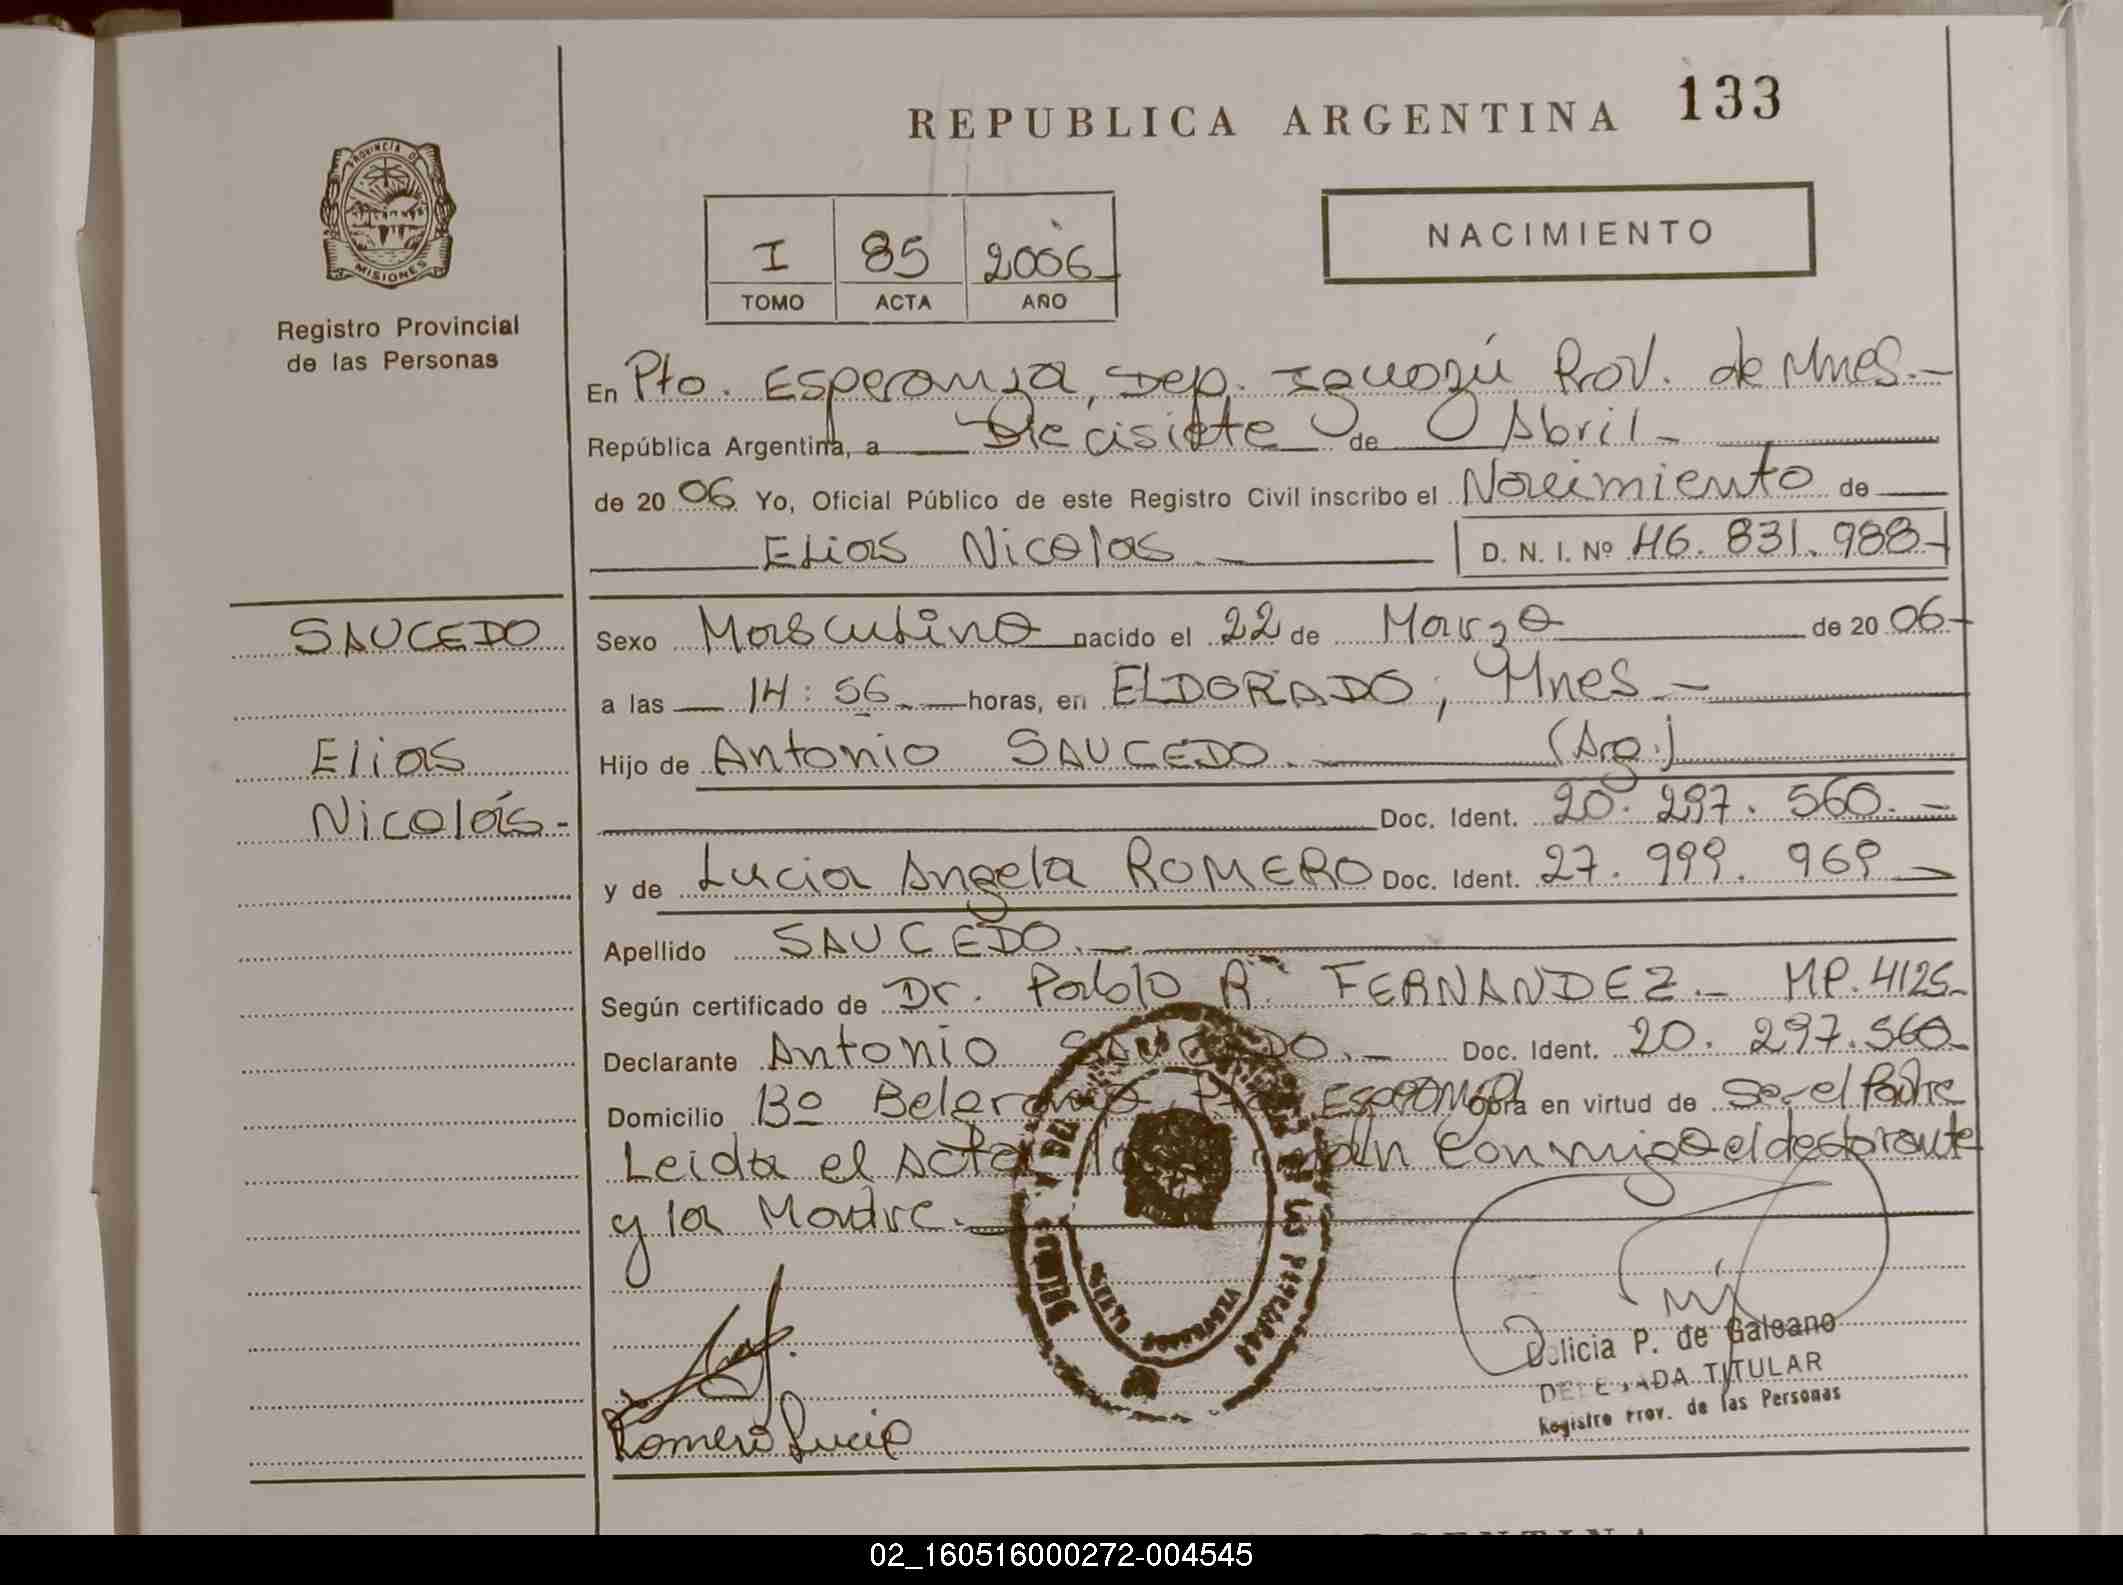 REPUBLICA ARGENTINA 133
PROVINCIA DE
MISIONES
Registro Provincial
de las Personas
I 85 2006
TOMO ACTA AÑO
NACIMIENTO
En Pto. Esperanza, Dep. Iguazú Prov. de Mnes.-
República Argentina, a Diecisiete de Abril-
de 2006 Yo, Oficial Público de este Registro Civil inscribo el Nacimiento de
Elias Nicolas D. N. I. Nº 46.831.988-
SAUCEDO
Sexo Masculino nacido el 22 de Marzo de 2006-
a las 14:56 horas, en ELDORADO, Mnes-
Elias
Hijo de Antonio SAUCEDO. (Arg.)
Nicolás-
Doc. Ident. 20.297.560.-
y de Lucia Angela ROMERO Doc. Ident. 27.999.969-
Apellido SAUCEDO.-
Según certificado de Dr. Pablo R. FERNANDEZ.- MP.4125-
Declarante Antonio SAUCEDO.- Doc. Ident. 20.297.560-
Domicilio Bº Belgrano, Pto. Esperanza obra en virtud de ser el Padre
Leida el Acta, la conmigo el declarante
y la Madre.
Romero Lucia
Delicia P. de Galeano
DELEGADA TITULAR
Registro Prov. de las Personas
02_160516000272-004545